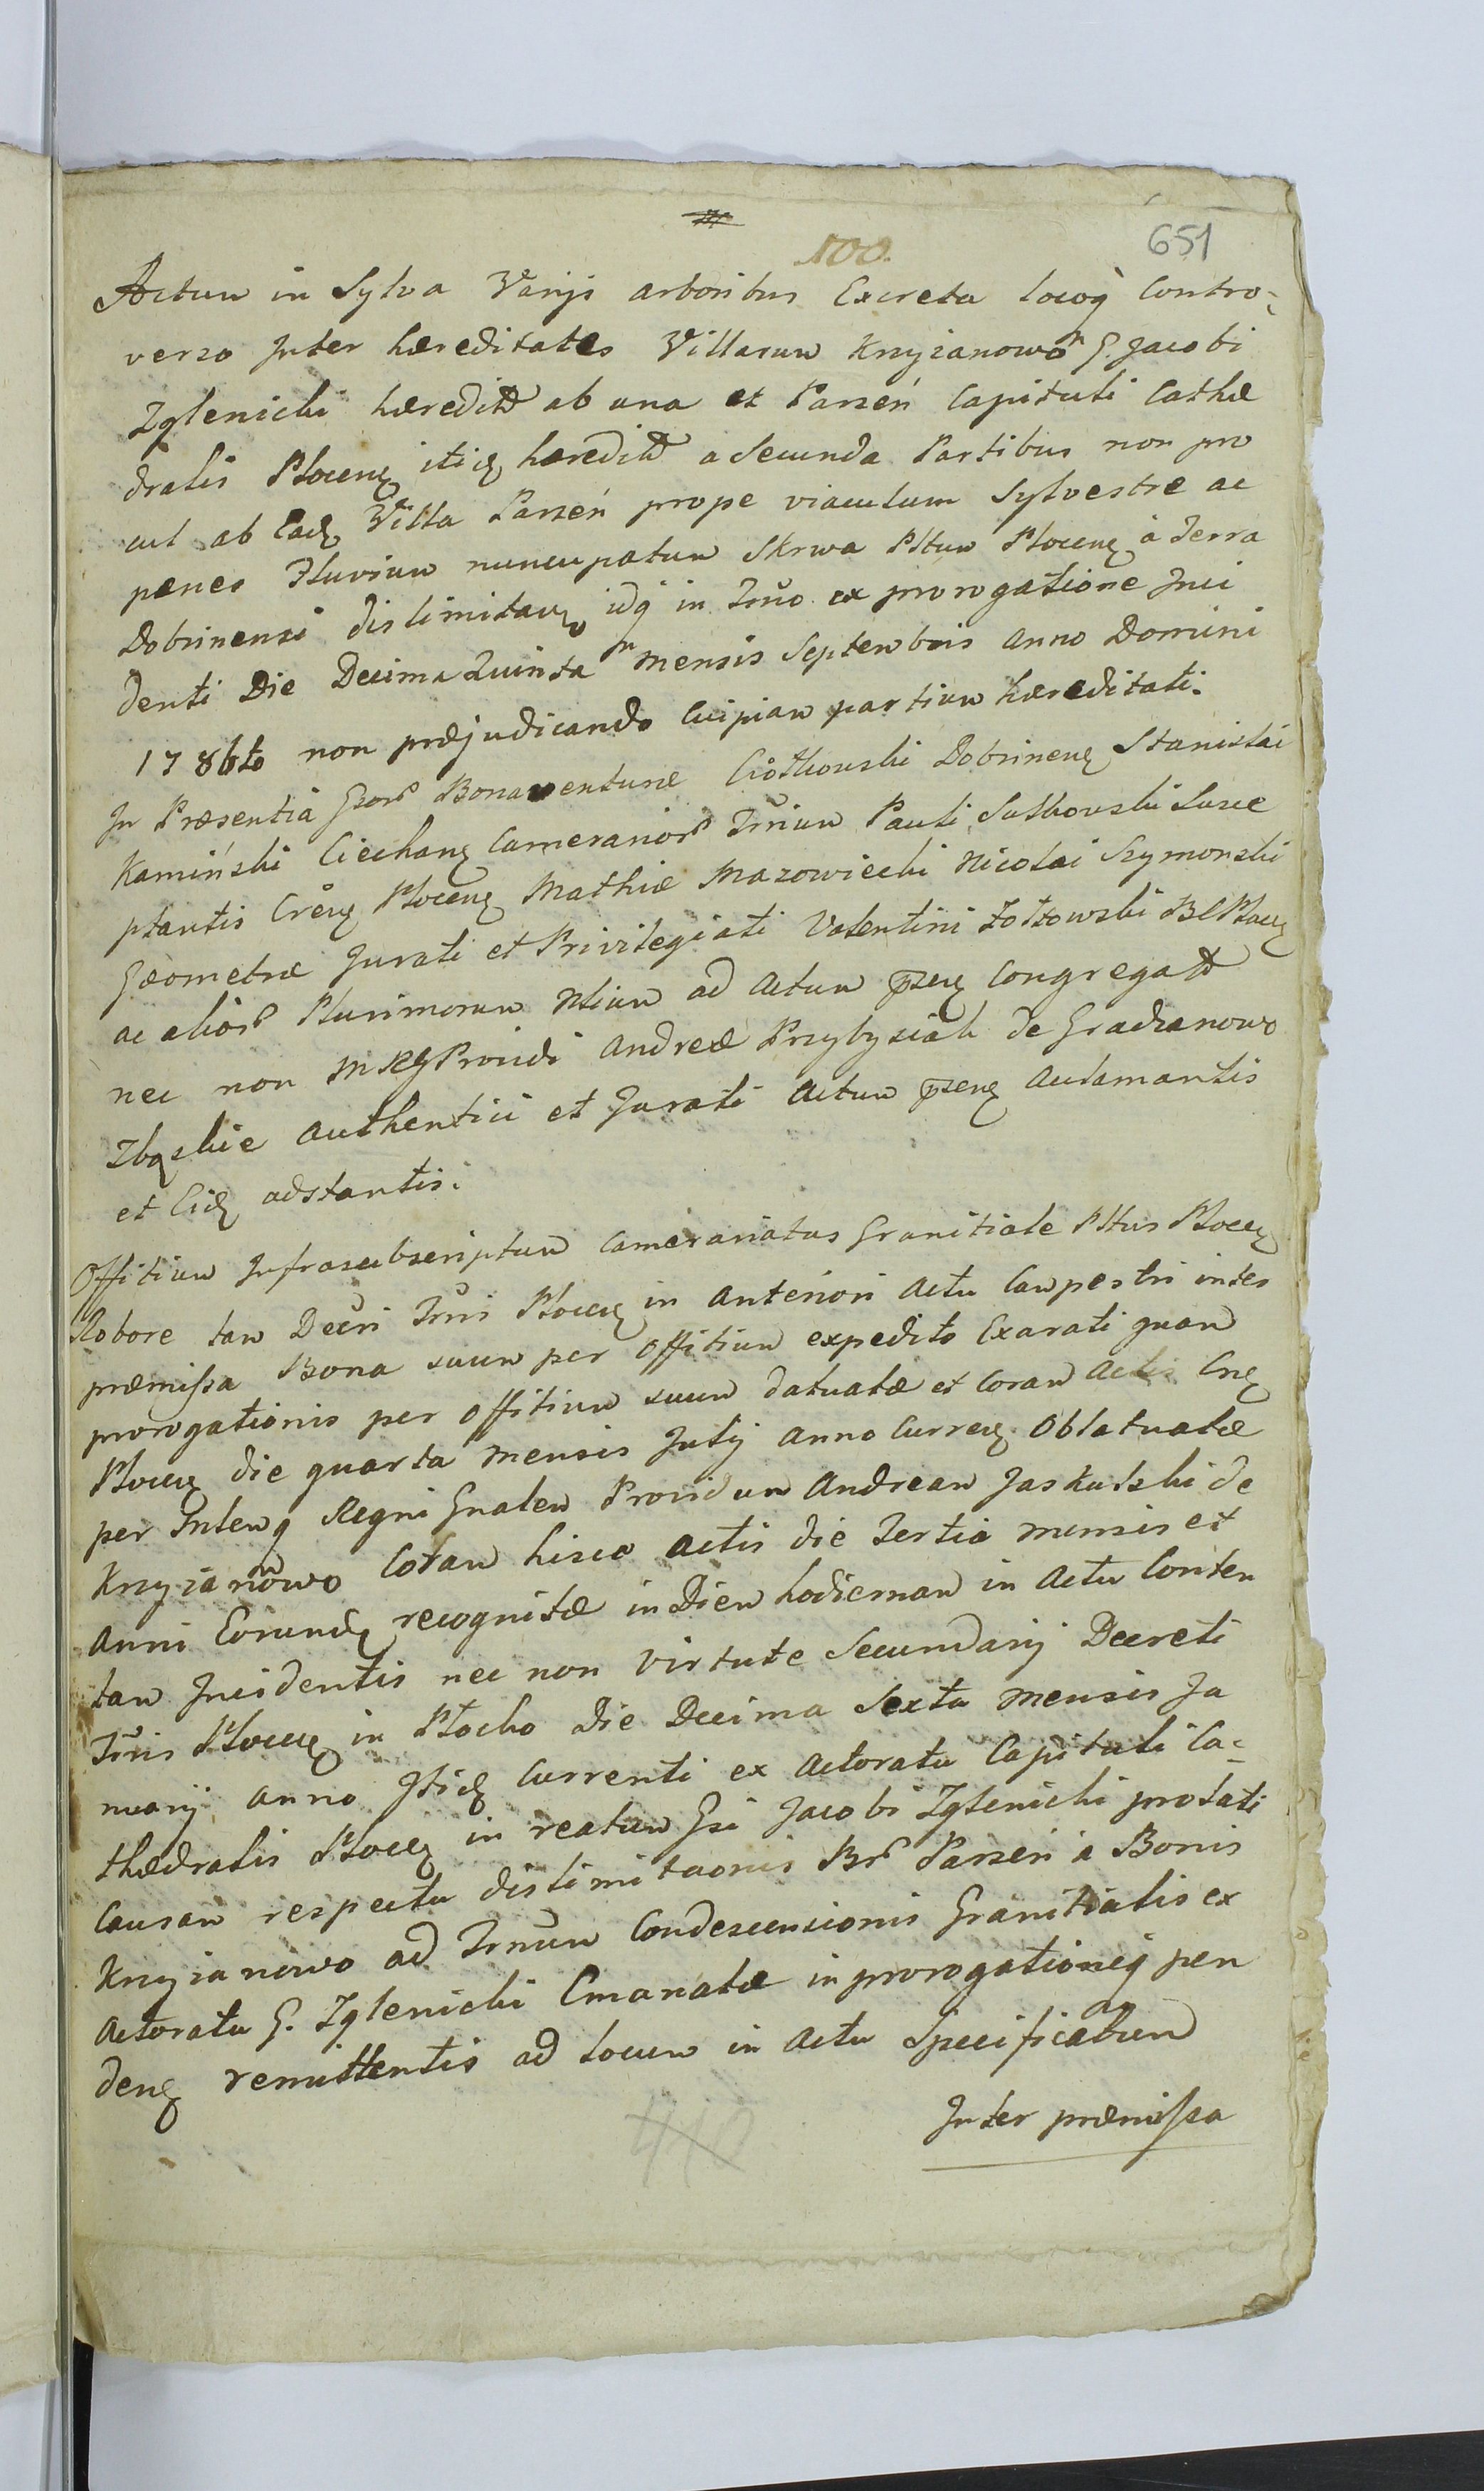 100.
651
Actum in Sylva Varijs arboribus Excreta locoq̀ Contro-
verso Inter hæreditates Villarum Krzyżanowo G. Jacobi
Zglenicki hæredit ab una et Parzeń Capituli Cathæ
dralis Plocen itid hæredit a Secunda Partibus non pro
cul ab Ead Villa Parzeń prope viaculum Sylvestre ac
penes Fluvium nuncupatum Skrwa Pltum Plocen à Terra
Dobrinensi dislimitan idq́ in Trno ex prorogatione Inci
denti Die Decima Quinta Mensis Septembris Anno Domini
1786to non præjudicando Cuipiam partium hæreditati.
In Præsentia Gsor Bonaventuræ Ciołkowski Dobrinen Stanislai
Kamiński Ciechan Camerarior Trrium Pauli Sutkowski Susce
ptantis Cren Plocen Mathiæ Mazowiecki Nicolai Szymonski
Geometræ Jurati et Privilegiati Valentini Żołtowski BC Plocen
ac alior Plurimorum Nlium ad Actum pzen Congregat
nec non Mrlg Providi Andreæ Przybysiak de Gradzanowo
Zbąskie Authentici et Jurati Actum pzen Acclamantis
et Eid adstantis.
Offitium Infrascubscriptum Camerariatus Granitiale Pltus Plocen
Robore tam Decri Trris Plocen in Anteriori Actu Campestri inter
præmissa Bona suum per Offitium expedito Exarati quam
prorogationis per Offitium suum datuatæ et Coram Actis Cren
Plocen die quarta Mensis Julij Anno Curren Oblatuatæ
per Inlemq Regni Gnalem Providum Andream Jaskulski de
Krzyżanowo Coram hisce Actis die Tertia mensis et
Anni Eorund recognitæ in Diem hodiernam in Actu Conten
tam Incidentis nec non Virtute Secundarij Decreti
Trris Plocen in Płocko Die Decima Sexta Mensis Ja
nuarij Anno Itid Currenti ex Actoratu Capituli Ca-
thædralis Plocen in reatum Gsi Jacobi Zglenicki prolati
Causam respectu dislimitaonis Br Parzeń a Bonis
Krzyżanowo ad Trnum Condescensionis Granitialis ex
Actoratu G. Zglenicki Emanatæ in prorogationeq́ pen
den remittentis ad locum in Actu Specificatum
Inter præmissa